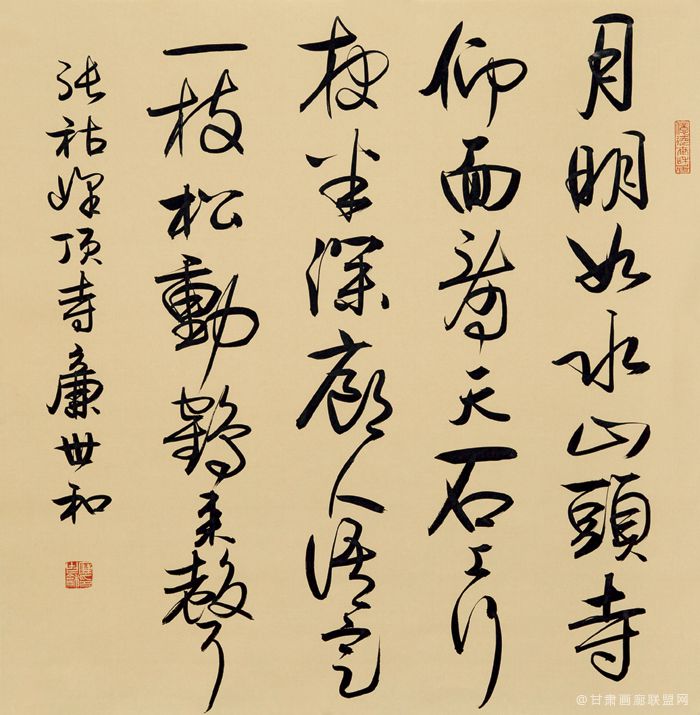 月明如水山頭寺
仰面天石上行
夜半深廊人語定
一枝松動鶴来聲
张祜顶寺廉世和
@甘肃画廊联盟网